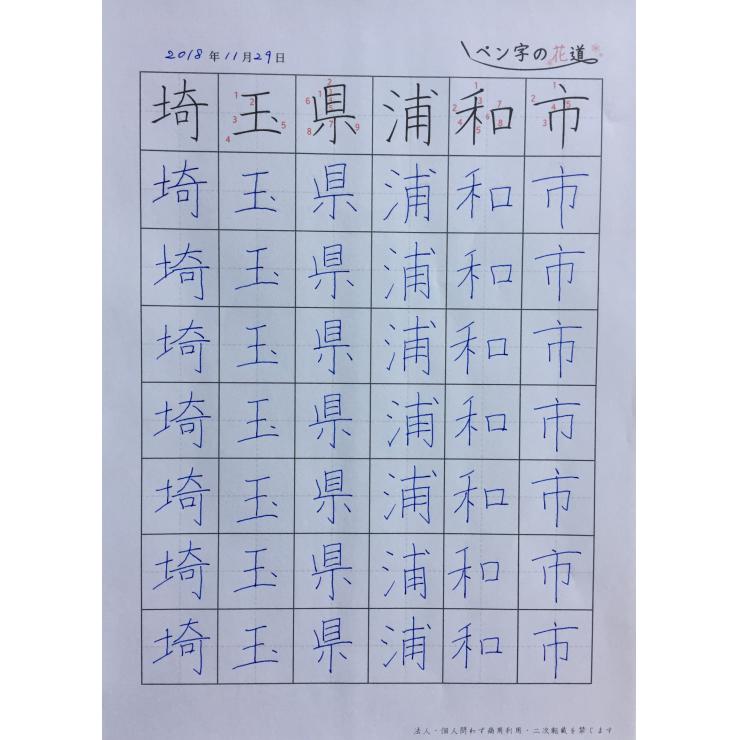 2018年11月29日
ペン字の花道
埼玉県浦和市
埼玉県浦和市
埼玉県浦和市
埼玉県浦和市
埼玉県浦和市
埼玉県浦和市
埼玉県浦和市
埼玉県浦和市
法人・個人問わず商用利用・二次転載を禁じます